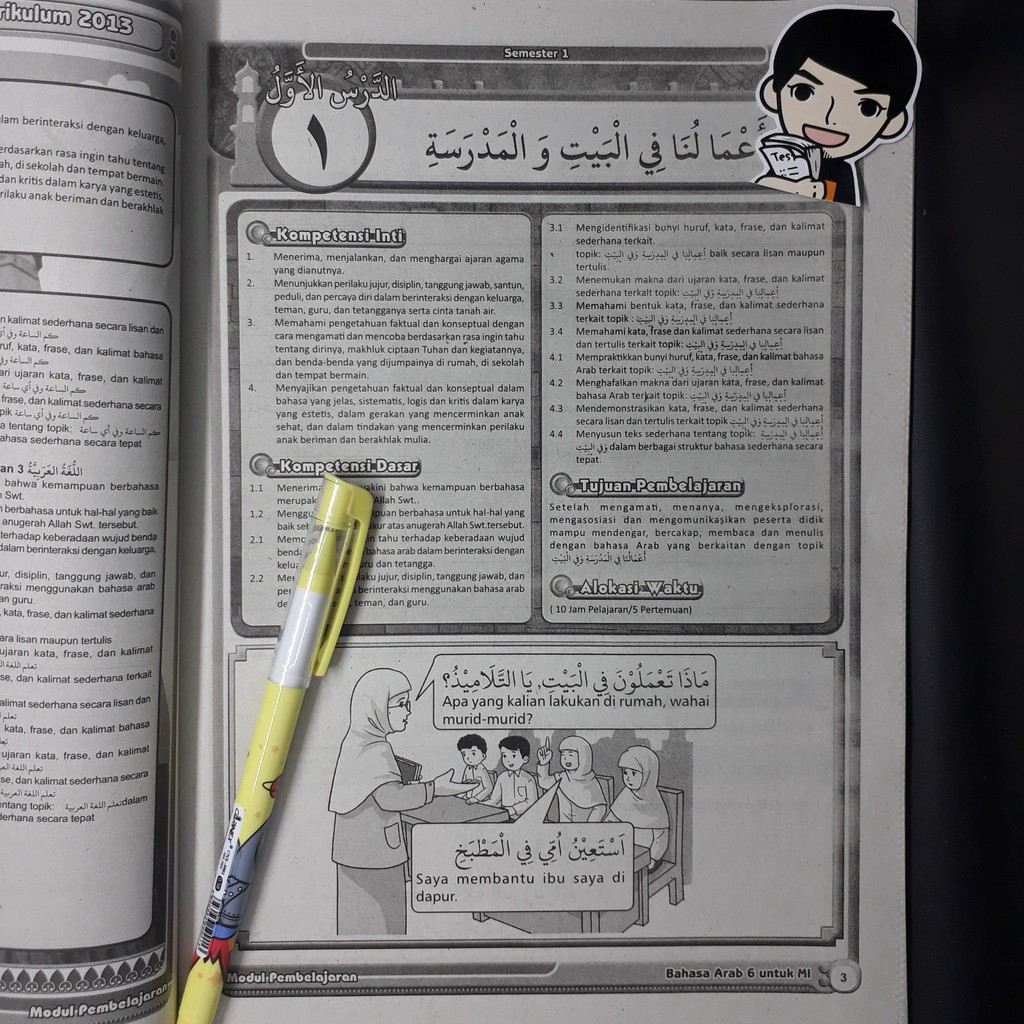 rikulum 2013
lam berinteraksi dengan keluarga,
erdasarkan rasa ingin tahu tentang
ah, di sekolah dan tempat bermain.
dan kritis dalam karya yang estetis,
rilaku anak beriman dan berakhlak
n kalimat sederhana secara lisan dan
كم الساعة وفي أي
ruf, kata, frase, dan kalimat bahasa
كم الساعة وفي
ari ujaran kata, frase, dan kalimat
كم الساعة وفي أي ساعة
frase, dan kalimat sederhana secara
pik كم الساعة وفي أي ساعة
a tentang topik: كم الساعة وفي أي ساعة
ahasa sederhana secara tepat
an 3 اللُّغَةُ العَرَبِيَّةُ
bahwa kemampuan berbahasa
h Swt.
n berbahasa untuk hal-hal yang baik
anugerah Allah Swt. tersebut.
terhadap keberadaan wujud benda
dalam berinteraksi dengan keluarga,
ur, disiplin, tanggung jawab, dan
raksi menggunakan bahasa arab
an guru.
, kata, frase, dan kalimat sederhana
ara lisan maupun tertulis
ujaran kata, frase, dan kalimat
تعلم اللغة
se, dan kalimat sederhana terkait
alimat sederhana secara lisan dan
تعلم
kata, frase, dan kalimat bahasa
ujaran kata, frase, dan kalimat
تعلم اللغة
se, dan kalimat sederhana secara
تعلم اللغة العربية
entang topik: تعلم اللغة العربية dalam
derhana secara tepat
Modul Pembelajaran
Semester 1
الدَّرْسُ الأَوَّلُ
١
أَعْمَا لُنَا فِي الْبَيْتِ وَ الْمَدْرَسَةِ
Test
Kompetensi Inti
1. Menerima, menjalankan, dan menghargai ajaran agama
yang dianutnya.
2. Menunjukkan perilaku jujur, disiplin, tanggung jawab, santun,
peduli, dan percaya diri dalam berinteraksi dengan keluarga,
teman, guru, dan tetangganya serta cinta tanah air.
3. Memahami pengetahuan faktual dan konseptual dengan
cara mengamati dan mencoba berdasarkan rasa ingin tahu
tentang dirinya, makhluk ciptaan Tuhan dan kegiatannya,
dan benda-benda yang dijumpainya di rumah, di sekolah
dan tempat bermain.
4. Menyajikan pengetahuan faktual dan konseptual dalam
bahasa yang jelas, sistematis, logis dan kritis dalam karya
yang estetis, dalam gerakan yang mencerminkan anak
sehat, dan dalam tindakan yang mencerminkan perilaku
anak beriman dan berakhlak mulia.
Kompetensi Dasar
1.1 Menerima akini bahwa kemampuan berbahasa
merupak Allah Swt..
1.2 Mengg puan berbahasa untuk hal-hal yang
baik seb kur atas anugerah Allah Swt.tersebut.
2.1 Memo n tahu terhadap keberadaan wujud
benda bahasa arab dalam berinteraksi dengan
kelua ru dan tetangga.
2.2 Mem laku jujur, disiplin, tanggung jawab, dan
per berinteraksi menggunakan bahasa arab
de teman, dan guru.
3.1 Mengidentifikasi bunyi huruf, kata, frase, dan kalimat
sederhana terkait.
topik: أعمالنا في المدرسة وفي البيت baik secara lisan maupun
tertulis.
3.2 Menemukan makna dari ujaran kata, frase, dan kalimat
sederhana terkait topik: أعمالنا في المدرسة وفي البيت
3.3 Memahami bentuk kata, frase, dan kalimat sederhana
terkait topik: أعمالنا في المدرسة وفي البيت
3.4 Memahami kata, frase dan kalimat sederhana secara lisan
dan tertulis terkait topik: أعمالنا في المدرسة وفي البيت
4.1 Mempraktikkan bunyi huruf, kata, frase, dan kalimat bahasa
Arab terkait topik: أعمالنا في المدرسة وفي البيت
4.2 Menghafalkan makna dari ujaran kata, frase, dan kalimat
bahasa Arab terkait topik: أعمالنا في المدرسة وفي البيت
4.3 Mendemonstrasikan kata, frase, dan kalimat sederhana
secara lisan dan tertulis terkait topik أعمالنا في المدرسة وفي البيت
4.4 Menyusun teks sederhana tentang topik: أعمالنا في المدرسة
وفي البيت dalam berbagai struktur bahasa sederhana secara
tepat.
Tujuan Pembelajaran
Setelah mengamati, menanya, mengeksplorasi,
mengasosiasi dan mengomunikasikan peserta didik
mampu mendengar, bercakap, membaca dan menulis
dengan bahasa Arab yang berkaitan dengan topik
أَعْمَالُنَا فِي الْمَدْرَسَةِ وَفِي الْبَيْتِ
Alokasi Waktu
( 10 Jam Pelajaran/5 Pertemuan)
مَاذَا تَعْمَلُوْنَ فِي الْبَيْتِ, يَا التَّلَامِيْذُ؟
Apa yang kalian lakukan di rumah, wahai
murid-murid?
اَسْتَعِيْنُ اُمِّي فِي الْمَطْبَخِ
Saya membantu ibu saya di
dapur.
Modul Pembelajaran
Bahasa Arab 6 untuk MI
3